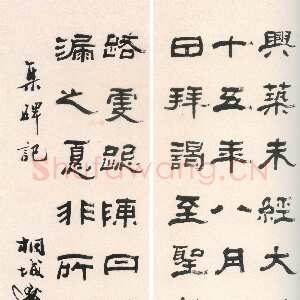 興築未經大
十五年八月
日拜謁至聖
路陳曰
漏之非所
集碑記
桐城
Shufawang.CN